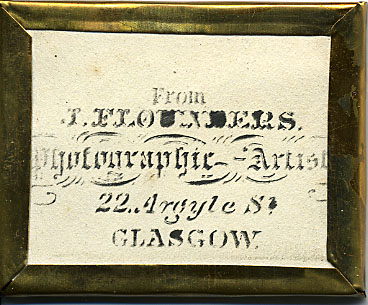 From
J. FLOUNDERS.
Photographic Artist
22, Argyle St
GLASGOW.